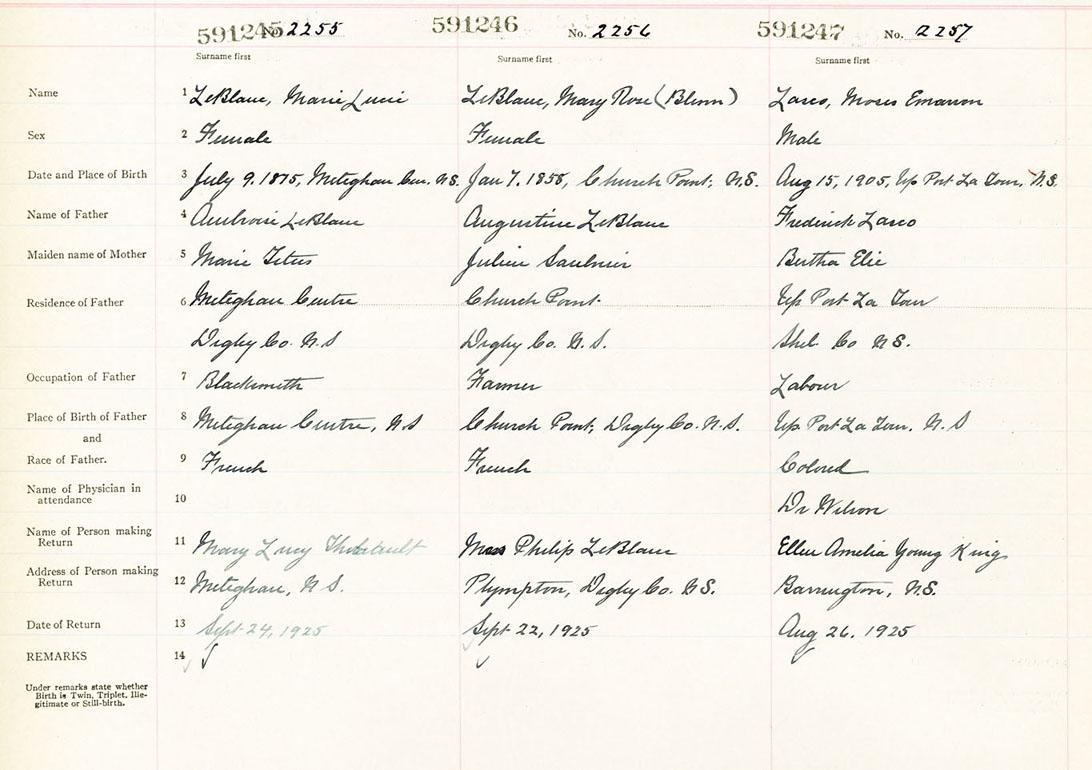 591245 No. 2255 591246 No. 2256 591247 No. 2257
Surname first Surname first Surname first
Name 1 LeBlanc, Marie Lucie LeBlanc, Mary Rose (Blenn) Lasco, Moses Emarson
Sex 2 Female Female Male
Date and Place of Birth 3 July 9. 1875, Meteghan Cen. N.S. Jan 7. 1858, Church Point, N.S. Aug 15, 1905, Up Port La Tour, N.S.
Name of Father 4 Ambroise LeBlanc Augustine LeBlanc Frederick Lasco
Maiden name of Mother 5 Marie Titus Julien Saulnier Bertha Elie
Residence of Father 6 Meteghan Centre Church Point Up Port La Tour
Digby Co. N.S Digby Co. N.S. Shel. Co N.S.
Occupation of Father 7 Blacksmith Farmer Labour
Place of Birth of Father 8 Meteghan Centre, N.S Church Point, Digby Co. N.S. Up. Port La Tour. N.S
and
Race of Father. 9 French French Colored
Name of Physician in
attendance 10 Dr Wilson
Name of Person making
Return 11 Mary Lucy Thibault Philip LeBlanc Ellen Amelia Young King
Address of Person making
Return 12 Meteghan, N.S. Plympton, Digby Co. N.S. Barrington, N.S.
Date of Return 13 Sept 24, 1925 Sept 22, 1925 Aug 26. 1925
REMARKS 14
Under remarks state whether
Birth is Twin, Triplet, Ille-
gitimate or Still-birth.